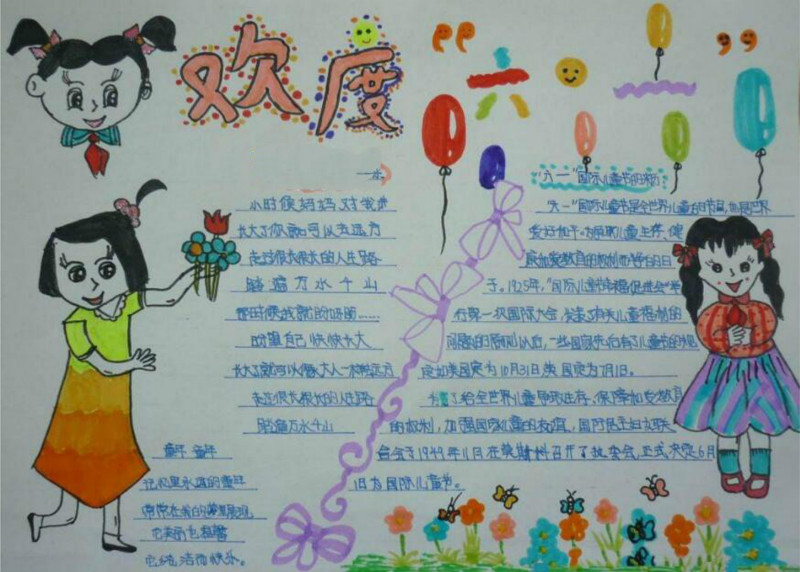 欢度“六一”
小时候妈妈对我讲
长大了你就可以去远方
走过很长很长的人生路
踏遍万水千山
那时候我就盼呀盼……
盼望自己快快长大
长大了就可以像大人一样去远方
走过很长很长的人生路
踏遍万水千山
童年 童年
记忆里永远的童年
常常在我的梦里出现
它美丽也
它纯洁而快乐。
“六一”国际儿童节的来历
“六一”国际儿童节是全世界儿童的节日,
爱好和平,为保障儿童生存、保
康和受教育的权利而
于。1925年,“国际儿童幸福促进会”举
行第一次国际大会,
问题的原则以后,一些国家先后有了儿童节的规
定如美国定为10月31日英国定为7月1日。
为了给全世界儿童争取生存、保障和受教育
的权利,加强国际儿童的友谊,国际民主妇女联
合会于1949年11月在莫斯科召开了执委会,正式决定6月
1日为国际儿童节。